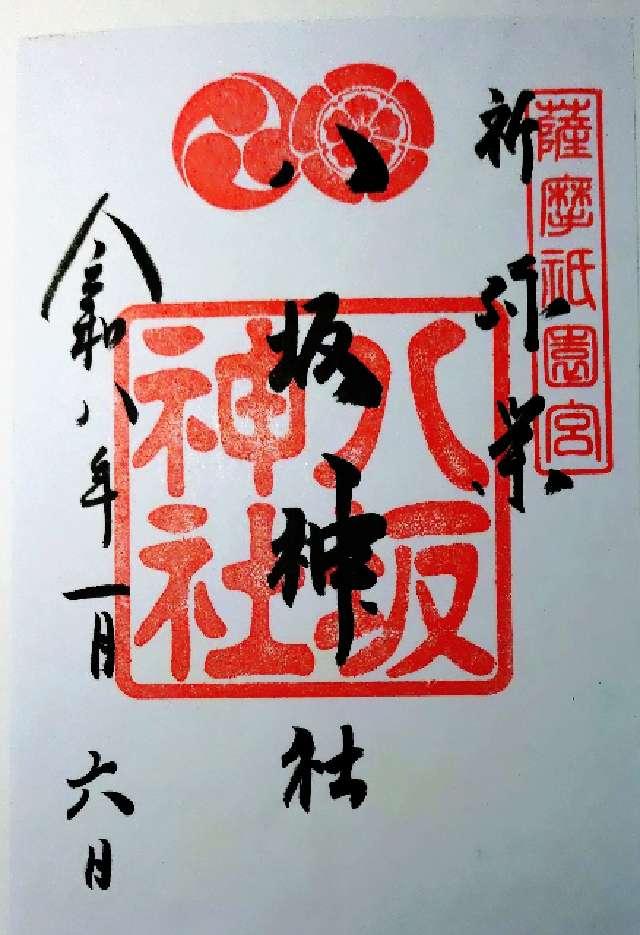 薩摩祇園宮
祈弥栄
八坂神社
八坂
神社
令和八年一月六日